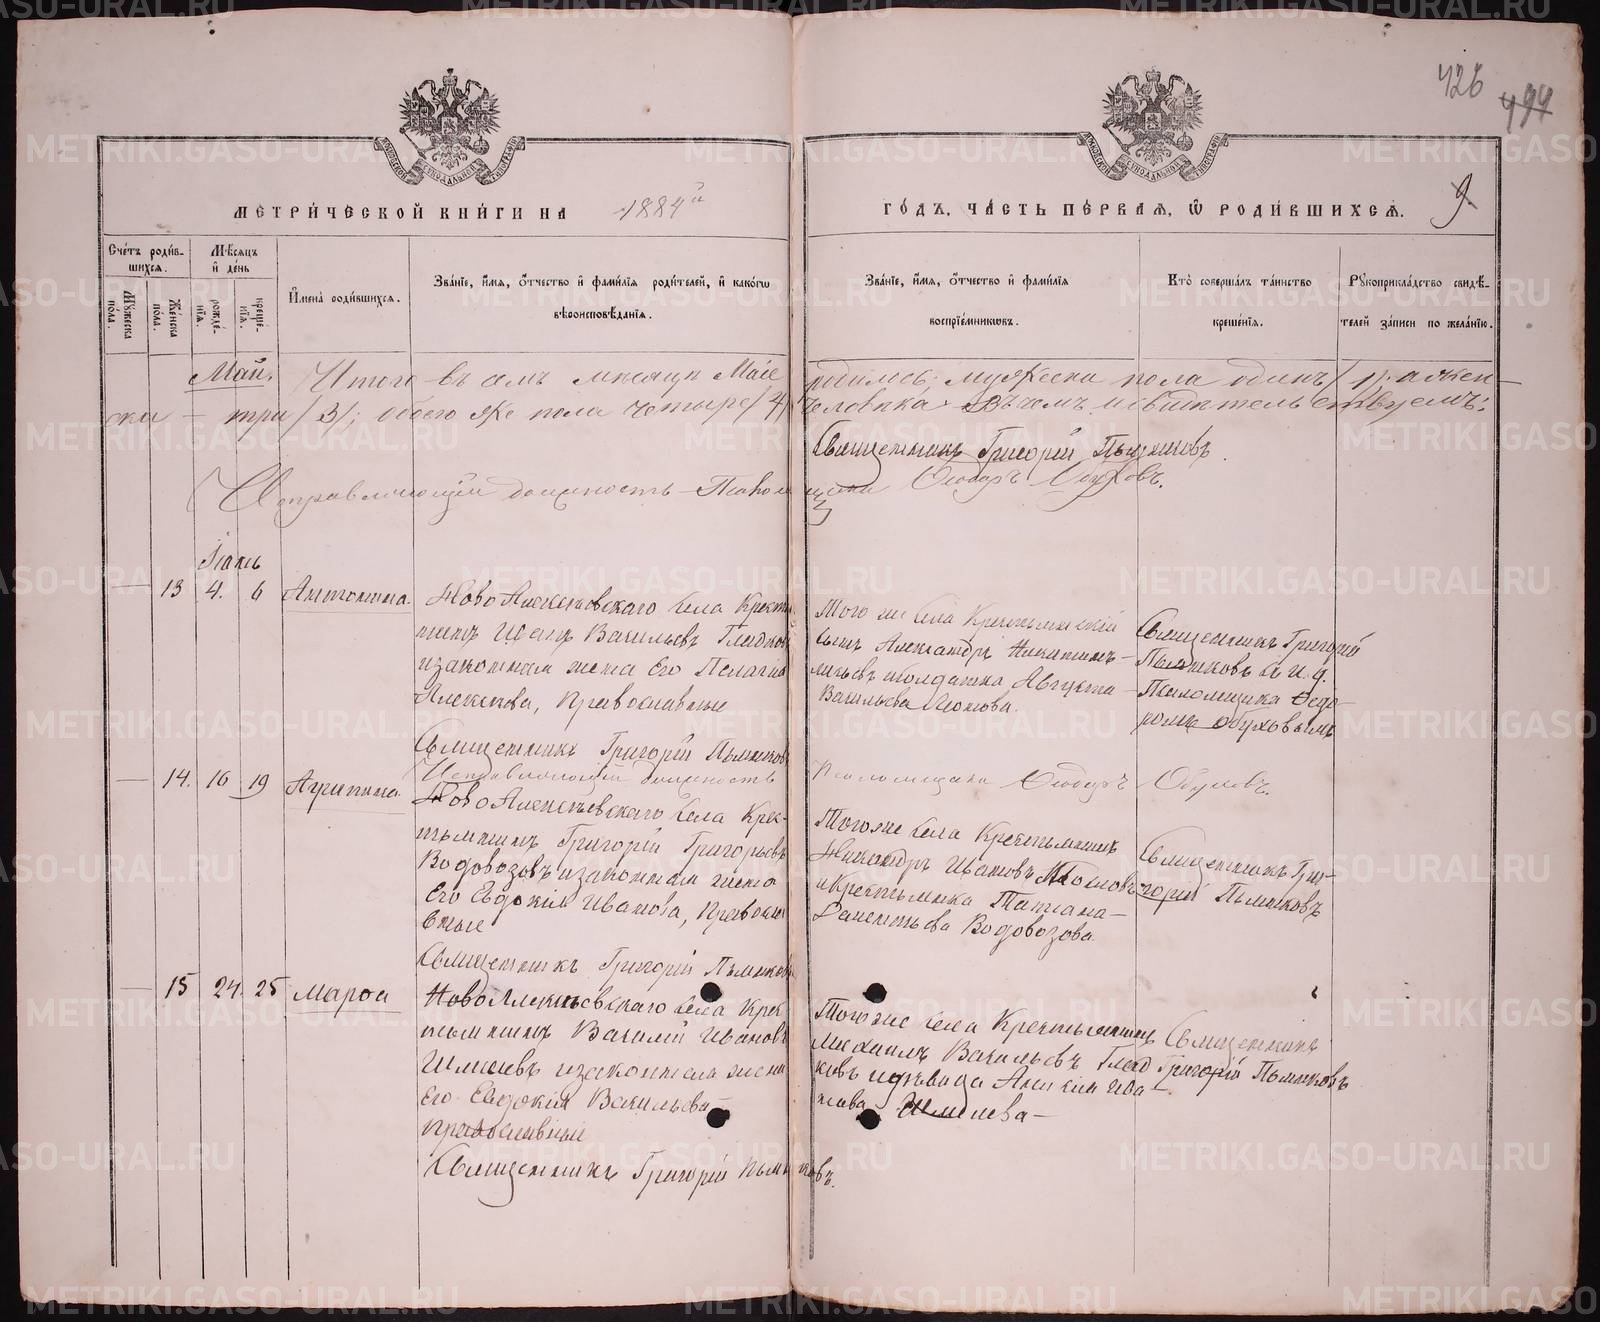 426 494
МЕТРИЧЕСКОЙ КНИГИ НА 1884й ГОДЪ, ЧАСТЬ ПЕРВАЯ, Ѡ РОДИВШИХСЯ. 9.
Счетъ родившихся.
Мѣсяцъ и день
Мужеска пола.
Женска пола.
рожденія.
крещенія.
Имена родившихся.
Званіе, имя, отчество и фамилія родителей, и какогѡ вѣроисповѣданія.
Званіе, имя, отчество и фамилія воспріемниковъ.
Кто совершалъ таинство крещенія.
Рукоприкладство свидѣтелей записи по желанію.
Май. Итого въ семъ мѣсяцѣ Маіе родилось: мужеска пола одинъ /1/ а жен-
ска — три /3/; обоего же пола четыре /4/ человѣка. Въ чемъ и свидѣтельствуемъ:
Священникъ Григорій Пьянковъ.
Исправляющій должность Псаломщика Ѳеодоръ Обуховъ.
Іюнь
13 4. 6 Антонина.
Ново Алексѣевскаго села Кресть
янинъ Иванъ Васильевъ Гладков
и законная жена Его Пелагія
Алексѣева, православные
Того же села Крестьянскій
сынъ Александръ
и солдатка Августа
Васильева
Священникъ Григорій
Пьянковъ с И. д.
Псаломщика Ѳедо-
ромъ Обуховымъ
Священникъ Григорій Пьянковъ
Исправляющій должность Псаломщика Ѳеодоръ Обуховъ.
14. 16 19 Агрипина.
Ново Алексѣевскаго села Крес-
тьянинъ Григорій Григорьевъ
Водовозовъ и законная жена
Его Евдокія Иванова, Правосла
вные
Того же села Крестьянинъ
Никандръ Ивановъ
и Крестьянка Татіана
Водовозова.
Священникъ Гри-
горій Пьянковъ
Священникъ Григорій Пьянковъ
15 24. 25 Марѳа
Ново Алексѣевскаго села Крес
тьянинъ Василій Ивановъ
Шмелевъ и законная жена
Его Евдокія Васильева
православные
Того же села Крестьянинъ
Михаилъ Васильевъ Глад
ковъ и дѣвица Анисія Ива
нова Шмелева
Священникъ
Григорій Пьянковъ
Священникъ Григорій Пьянковъ.
METRIKI.GASO-URAL.RU